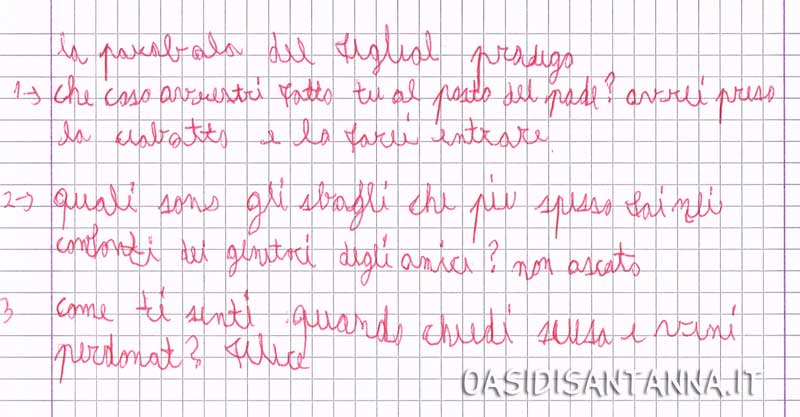 la parabala del figliol prodigo
1→ che cosa avrestri fatto tu al posto del pade? avrei preso
la ciabatta e lo farei entrare
2→ quali sono gli sbagli che più spesso fai nei
confonti dei genitori degli amici? non ascoto
3 come ti senti quando chiedi scusa e vieni
perdonat? felice
OASIDISANTANNA.IT